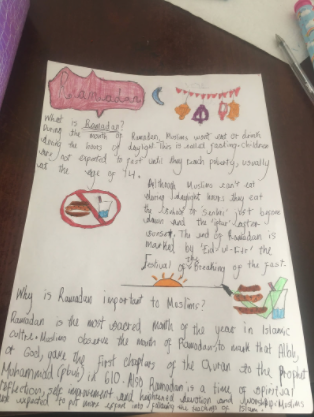 Ramadan
What is Ramadan?
During the month of Ramadan, Muslims wont eat or drink
during the hours of daylight. This is called fasting. Children
are not expected to fast until they reach puberty, usually
at the age of 14.
Although Muslims can't eat
during daylight hours they eat
before
dawn and the after
sunset. The end of Ramadan is
marked by 'Eid-ul-Fitr' the
festival of the breaking of the fast.
Why is Ramadan important to Muslims?
Ramadan is the most sacred month of the year in Islamic
culture. Muslims observe the month of Ramadan, to mark that Allah,
or God, gave the first chapters of the Quran to the Prophet
Muhammad (pbuh) in 610. Also Ramadan is a time of spiritual
reflection, self improvement and heightened devotion and worship. Muslims
are expected to put more effort into following the teachings of Islam